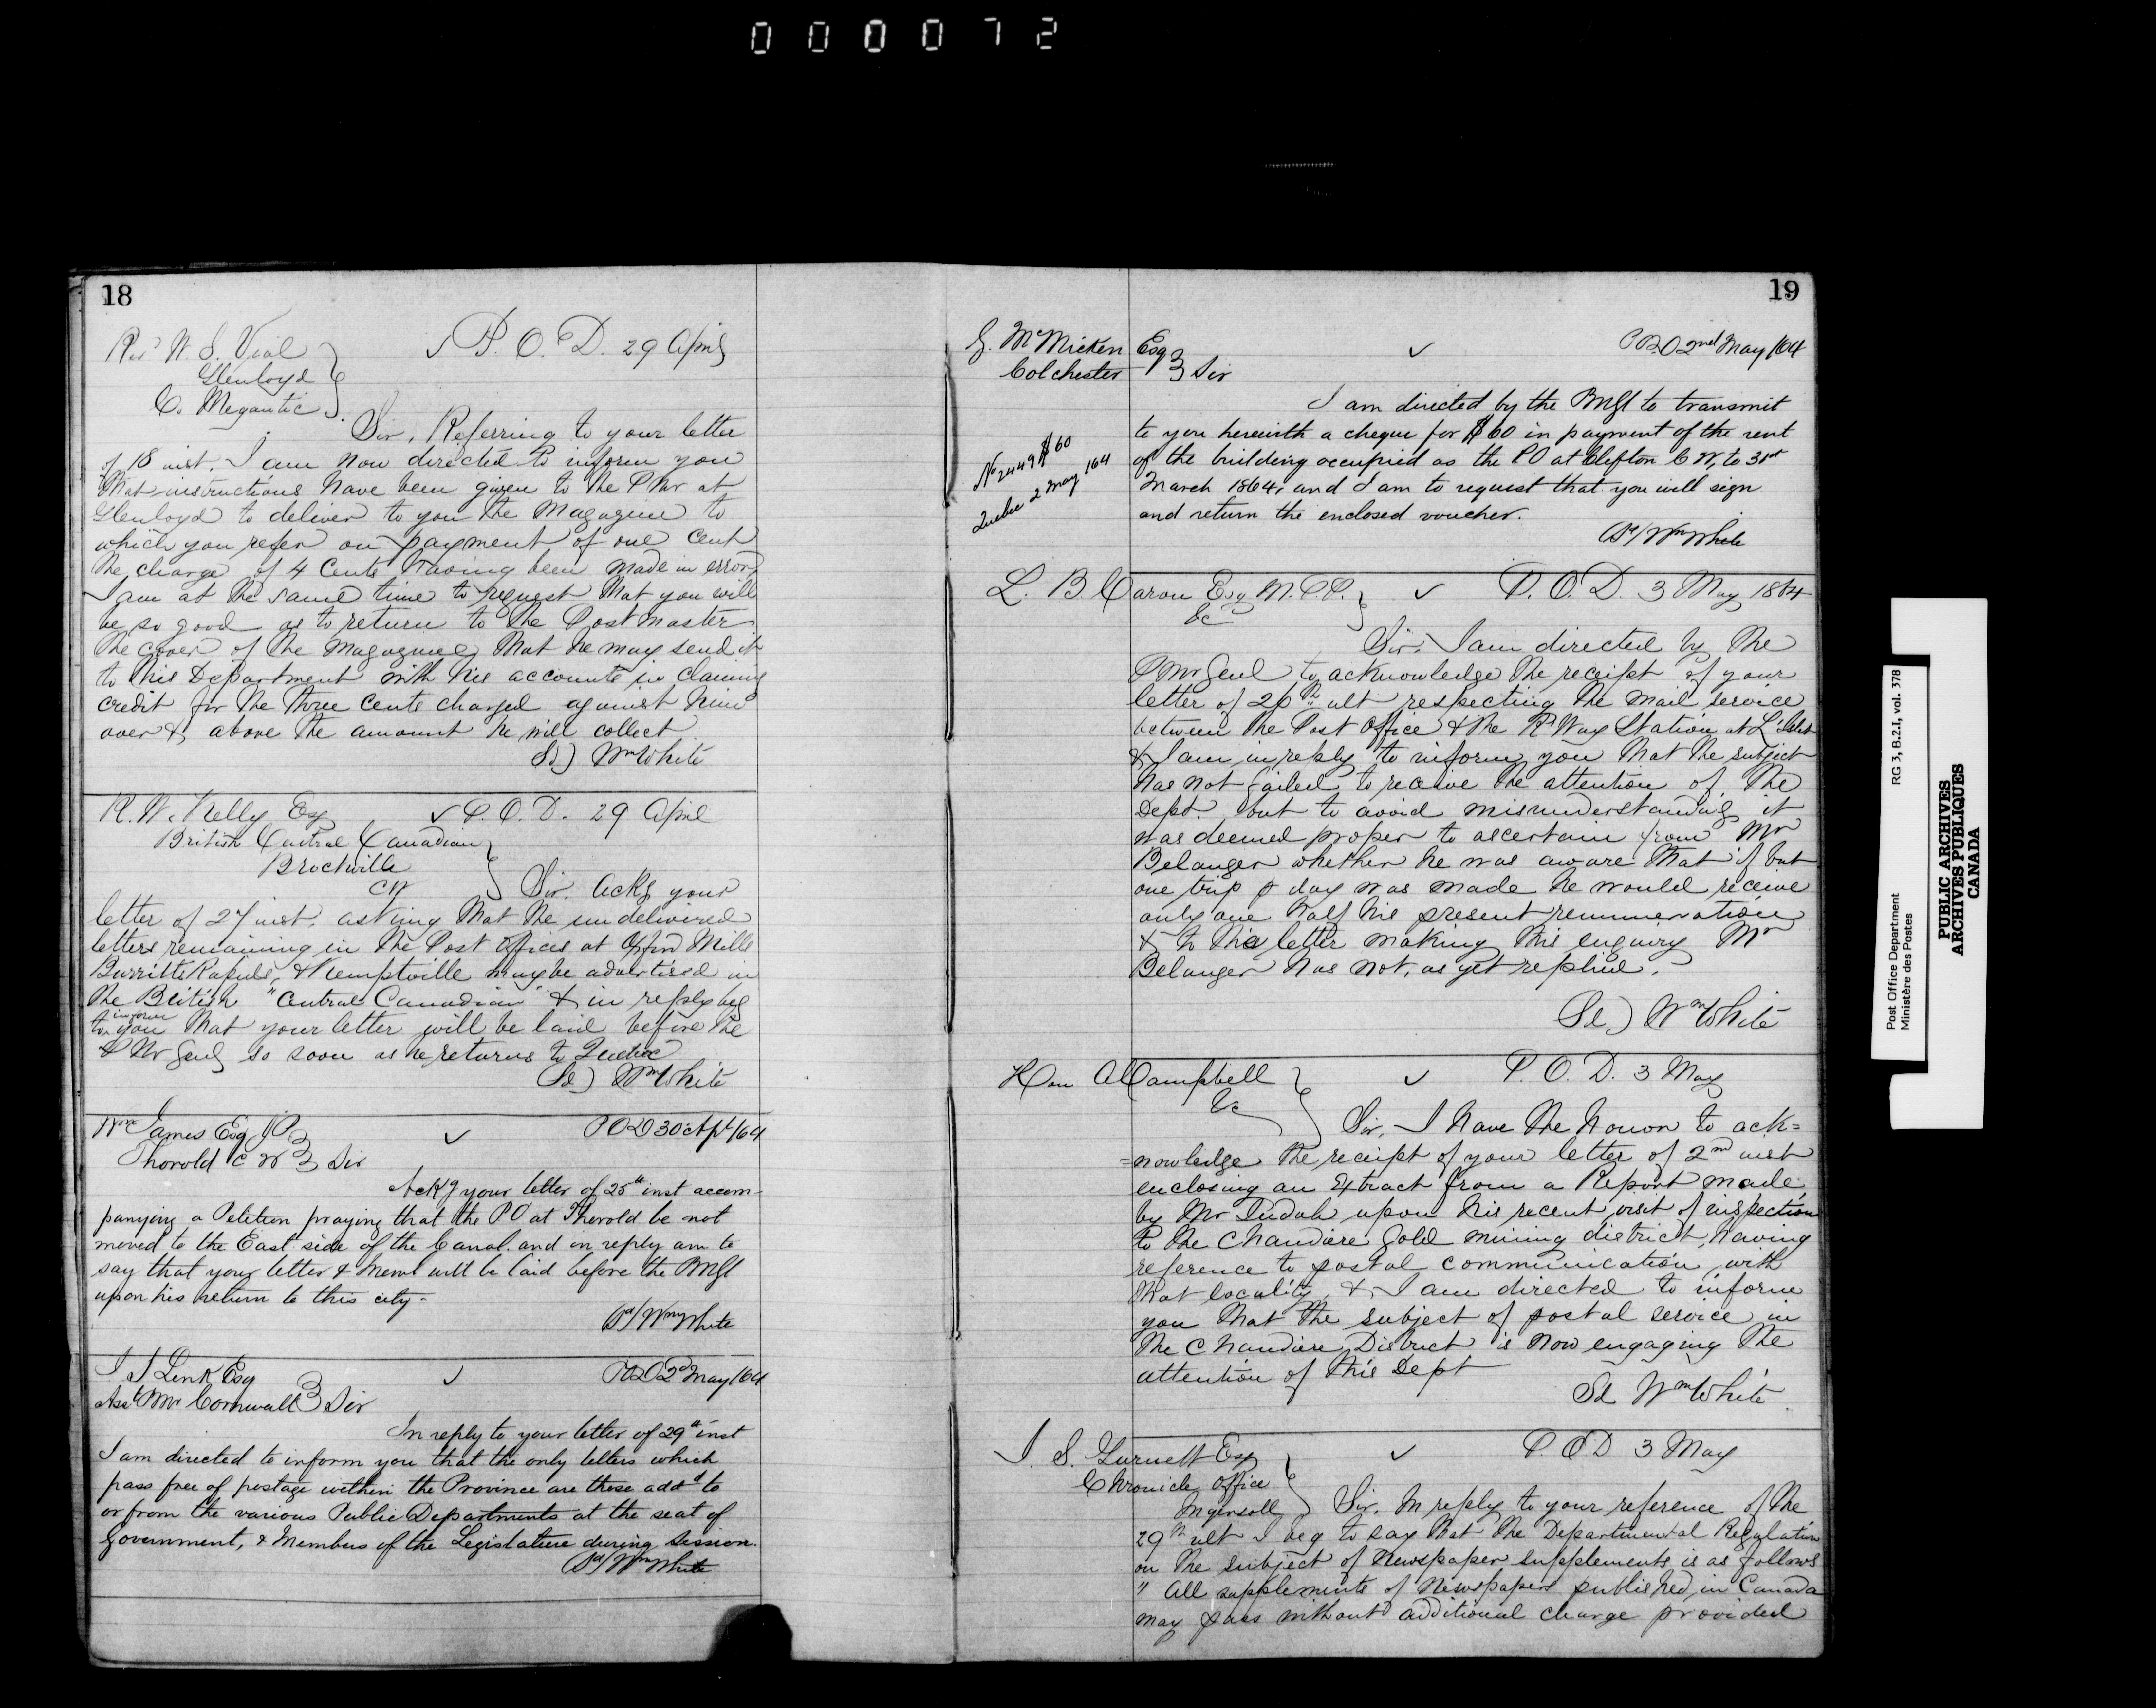 000072
18
Revd W. S. Vial
Glenloyd
Co. Megantic
✓ P. O. D. 29 April
Sir, Referring to your letter
of 18 inst. I am now directed to inform you
that instructions have been given to the P Mr at
Glenloyd to deliver to you the Magazine to
which you refer on payment of one cent
the charge of 4 Cents having been made in error,
I am at the same time to request that you will
be so good as to return to the Postmaster
the cover of the Magazine that he may send it
to this Department with his accounts in claiming
credit for the three cents charged against him
over & above the amount he will collect
Sd) Wm White
R. W. Kelly Esq
British Central Canadian
Brockville
CW
✓ P. O. D. 29 April
Sir. Ackg your
letter of 27 inst. asking that the undelivered
letters remaining in the Post Offices at Oxford Mills
Burritts Rapids, & Kemptville may be advertised in
the British "Central Canadian" & in reply beg
to inform you that your letter will be laid before the
P Mr Genl so soon as he returns to Quebec
Sd) Wm White
Wm James Esq JP
Thorold C W Sir
✓ POD 30 Apl /64
Ackg your letter of 25th inst accom-
panying a Petition praying that the PO at Thorold be not
moved to the East side of the Canal. and in reply am to
say that your letter & Meml will be laid before the PMGl
upon his return to this city-
Sd/ Wm White
J J Link Esq
Asst P Mr Cornwall Sir
✓ POD 2d May /64
In reply to your letter of 29th inst
I am directed to inform you that the only letters which
pass free of postage within the Province are those addd to
or from the various Public Departments at the seat of
Government, & Members of the Legislature during Session.
Sd/ Wm White
19
G. McMicken Esq
Colchester Sir
✓ POD 2nd May /64
I am directed by the PMGl to transmit
to you herewith a cheque for $60 in payment of the rent
of the building occupied as the PO at Clifton C W, to 31st
March 1864, and I am to request that you will sign
and return the enclosed voucher.
Sd/ Wm White
No 2449 $60
Quebec 2 May /64
L. B Caron Esq M.P.P.
&c
✓ P. O. D. 3 May 1864
Sir. I am directed by the
P Mr Genl to acknowledge the receipt of your
letter of 26th ult respecting the mail service
between the Post Office & the R Way Station at L'Islet
& I am in reply to inform you that the subject
has not failed to receive the attention of the
Dept. but to avoid misunderstanding it
was deemed proper to ascertain from Mr
Belanger whether he was aware that if but
one trip p day was made he would receive
only one half his present remuneration
& to the letter making this enquiry Mr
Belanger has not, as yet replied.
Sd) Wm White
Hon A Campbell
&c
✓ P. O. D. 3 May
Sir, I have the honor to ack=
=nowledge the receipt of your letter of 2nd inst
enclosing an Extract from a Report made
by Mr Judah upon his recent visit of inspection
to the Chaudiere Gold mining district, having
reference to postal communication with
that locality, & I am directed to inform
you that the subject of postal service in
the Chaudiere District is now engaging the
attention of this Dept
Sd Wm White
J. S. Gurnett Esq
Chronicle Office
Ingersoll
✓ P. O D 3 May
Sir. In reply to your reference of the
29th ult I beg to say that the Departmental Regulation
on the subject of Newspaper supplements is as follows
" All supplements of Newspapers published in Canada
may pass without additional charge provided
Post Office Department
Ministère des Postes
RG 3, B.2.I, vol. 378
PUBLIC ARCHIVES
ARCHIVES PUBLIQUES
CANADA